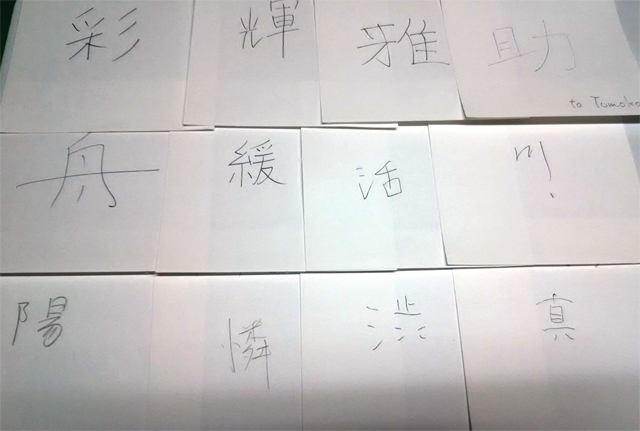 彩 輝 雅 助
to Tomoko
舟 緩 活 川
陽 憐 渋 真